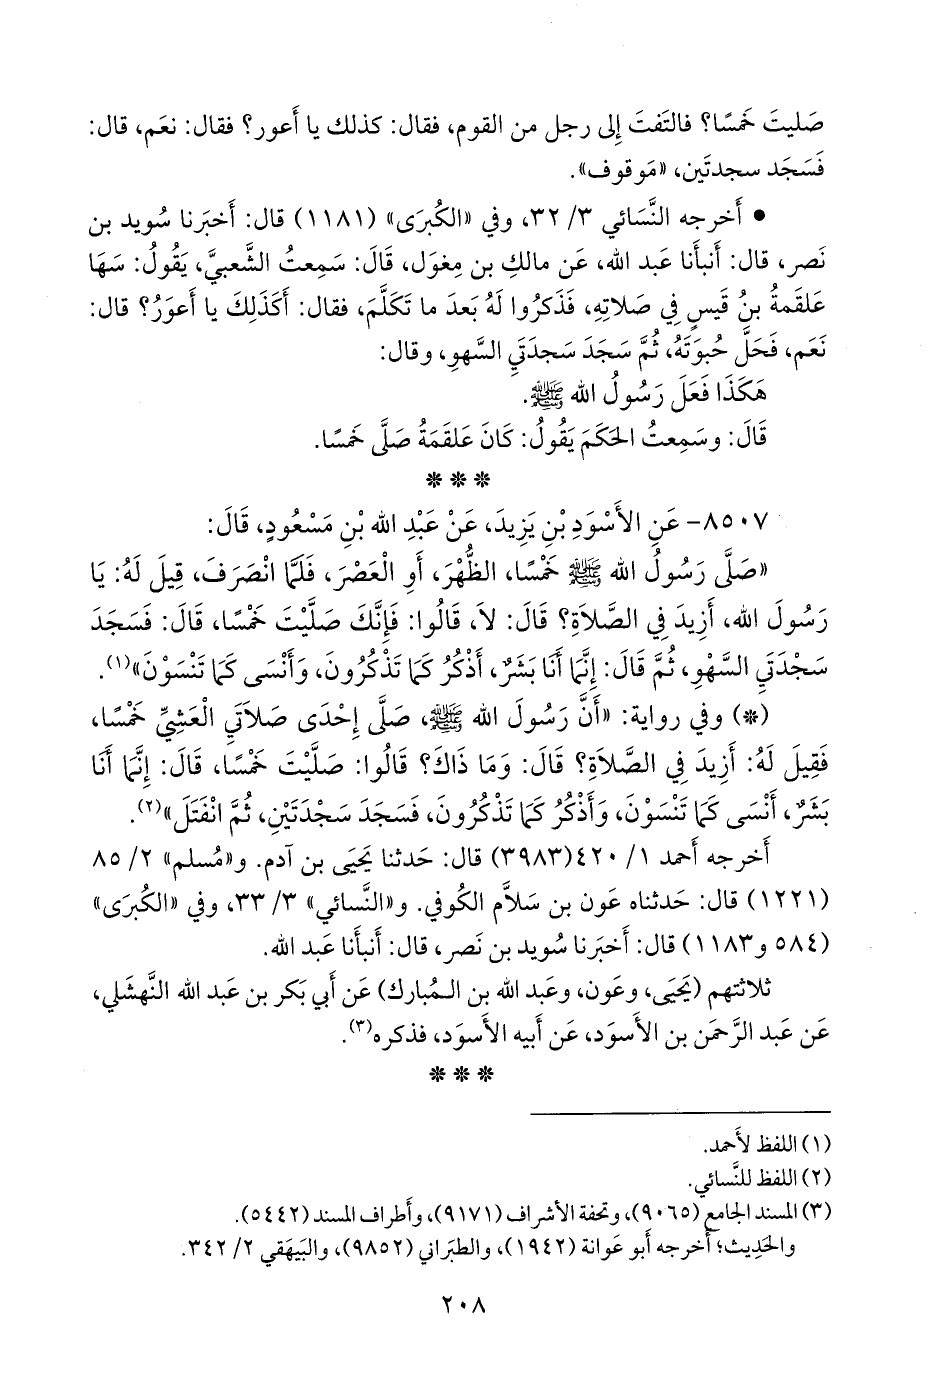 صَليتَ خَمسًا؟ فالتَفتَ إِلى رجل من القوم، فقال: كذلك يا أَعور؟ فقال: نعَم، قال:
فَسَجَد سجدتَين، «مَوقوف».
• أَخرجه النَّسائي ٣/ ٣٢، وفي «الكُبرَى» (١١٨١) قال: أَخبَرنا سُويد بن
نَصر، قال: أَنبأَنا عَبد الله، عَن مالكِ بن مِغوَل، قَالَ: سَمِعتُ الشَّعبيَّ، يَقُولُ: سَهَا
عَلقَمةُ بنُ قَيسٍ فِي صَلاتِهِ، فَذَكَروا لَهُ بَعدَ ما تَكَلَّمَ، فقال: أَكَذَلِكَ يا أَعوَرُ؟ قال:
نَعَم، فَحَلَّ حُبوَتَهُ، ثُمَّ سَجَدَ سَجدَتَيِ السَّهوِ، وقال:
هَكَذَا فَعَلَ رَسُولُ الله ﷺ.
قَالَ: وسَمِعتُ الحَكَمَ يَقُولُ: كَانَ عَلقَمَةُ صَلَّى خَمسًا.
* * *
٨٥٠٧- عَنِ الأَسْوَدِ بْنِ يَزِيدَ، عَنْ عَبْدِ الله بْنِ مَسْعُودٍ، قَالَ:
«صَلَّى رَسُولُ الله ﷺ خَمْسًا، الظُّهْرَ، أَوِ الْعَصْرَ، فَلَمَّا انْصَرَفَ، قِيلَ لَهُ: يَا
رَسُولَ الله، أَزِيدَ فِي الصَّلاَةِ؟ قَالَ: لاَ، قَالُوا: فَإِنَّكَ صَلَّيْتَ خَمْسًا، قَالَ: فَسَجَدَ
سَجْدَتَيِ السَّهْوِ، ثُمَّ قَالَ: إِنَّمَا أَنَا بَشَرٌ، أَذْكُرُ كَمَا تَذْكُرُونَ، وَأَنْسَى كَمَا تَنْسَوْنَ»(١).
(*) وفي رواية: «أَنَّ رَسُولَ الله ﷺ، صَلَّى إِحْدَى صَلاَتَيِ الْعَشِيِّ خَمْسًا،
فَقِيلَ لَهُ: أَزِيدَ فِي الصَّلاَةِ؟ قَالَ: وَمَا ذَاكَ؟ قَالُوا: صَلَّيْتَ خَمْسًا، قَالَ: إِنَّمَا أَنَا
بَشَرٌ، أَنْسَى كَمَا تَنْسَوْنَ، وَأَذْكُرُ كَمَا تَذْكُرُونَ، فَسَجَدَ سَجْدَتَيْنِ، ثُمَّ انْفَتَلَ»(٢).
أَخرجه أَحمد ١/ ٤٢٠ (٣٩٨٣) قال: حَدثنا يَحيَى بن آدم. و«مُسلم» ٢/ ٨٥
(١٢٢١) قال: حَدثناه عَون بن سَلاَّم الكُوفي. و«النَّسائي» ٣/ ٣٣، وفي «الكُبرَى»
(٥٨٤ و١١٨٣) قال: أَخبَرنا سُويد بن نَصر، قال: أَنبأَنا عَبد الله.
ثلاثتهم (يَحيَى، وعَون، وعَبد الله بن المُبارك) عَن أَبي بَكر بن عَبد الله النَّهشَلي،
عَن عَبد الرَّحمَن بن الأَسوَد، عَن أَبيه الأَسوَد، فذكره(٣).
* * *
(١) اللفظ لأَحمد.
(٢) اللفظ للنَّسائي.
(٣) المسند الجامع (٩٠٦٥)، وتحفة الأشراف (٩١٧١)، وأَطراف المسند (٥٤٤٢).
والحَدِيث؛ أَخرجه أَبو عَوانة (١٩٤٢)، والطبَراني (٩٨٥٢)، والبَيهَقي ٢/ ٣٤٢.
٢٠٨